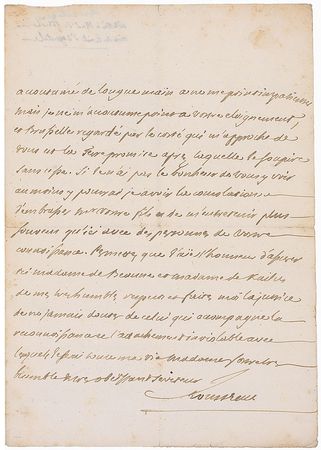 acoutumé de longue main a ne me point impatienter
mais je ne m'accoutume point a votre éloignement,
et Brusselle regardé par le costé qui m'approche de
vous est la Terre promise apres laquelle je soupire
sans cesse. Si je n'ai pas le bonheur de vous y voir
au moins y pourrai je avoir la consolation
d'embrasser Mr votre fils et de m'entretenir plus
souvent qu'ici avec des personnes de votre
connoissance. Permetez que j'aie l'honneur d'assurer
ici madame de et madame de
de mes treshumbles respects et faites moi la justice
de ne jamais douter de celui qui acompagne la
reconnoissance et l'attachement inviolable avec
lequel je serai toute ma vie Madame votre tres
humble et tres obeissant serviteur
Rousseau